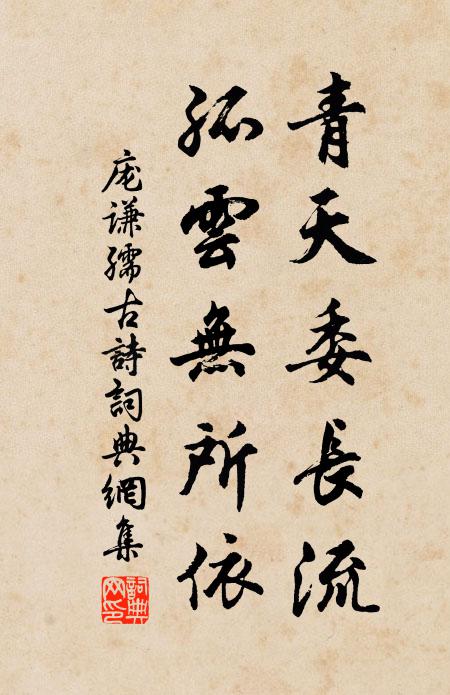 青天委長流
孤雲無所依
庞谦孺古詩詞典網集
詞典
网印